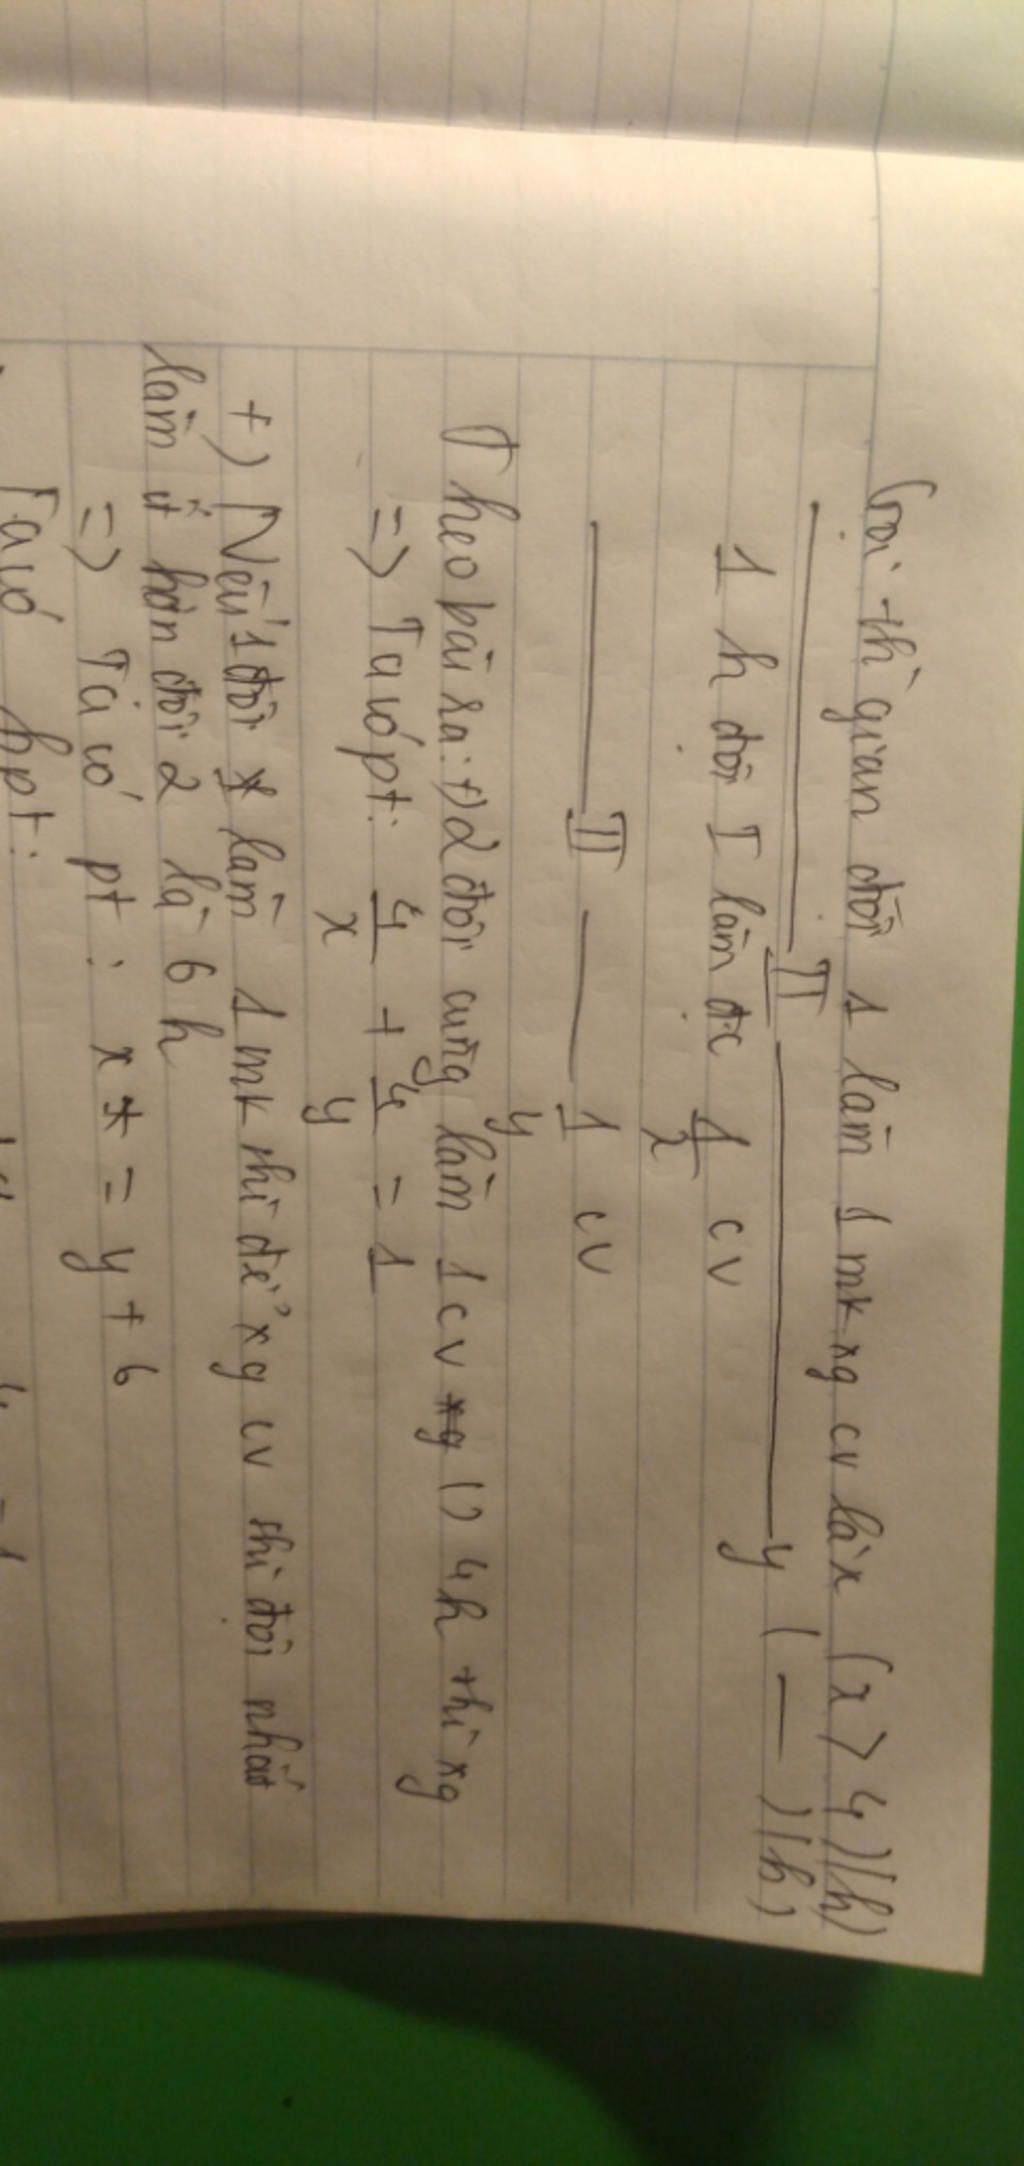 Gọi thì gian đội 1 làm 1 mk xg cv là x (x > 4)(h)
——— II ——— y ( — )(h)
1 h đội I làm đc 1/x cv
——— II —— 1/y cv
Theo bài ra: +) 2 đội cùng làm 1 cv xg () 4h thì xg
=> Ta có pt: 4/x + 4/y = 1
+) Nếu 1 đội làm 1 mk thì để xg cv thì đội nhất
làm ít hơn đội 2 là 6 h
=> Ta có pt: x = y + 6
Ta có hpt: